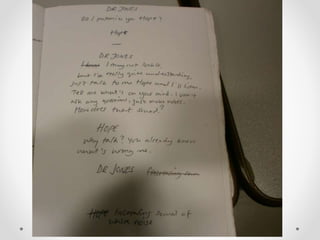 DR JONES
Do I patronise you Hope?
Hope
DR JONES
I may not look it,
but I'm really quite understanding,
just talk to me Hope and I'll listen.
Tell me what's on your mind. I won't
ask any questions, just make notes.
How does that sound?
HOPE
Why talk? You already know
what's wrong me.
DR JONES
Hope becoming sound of
white noise